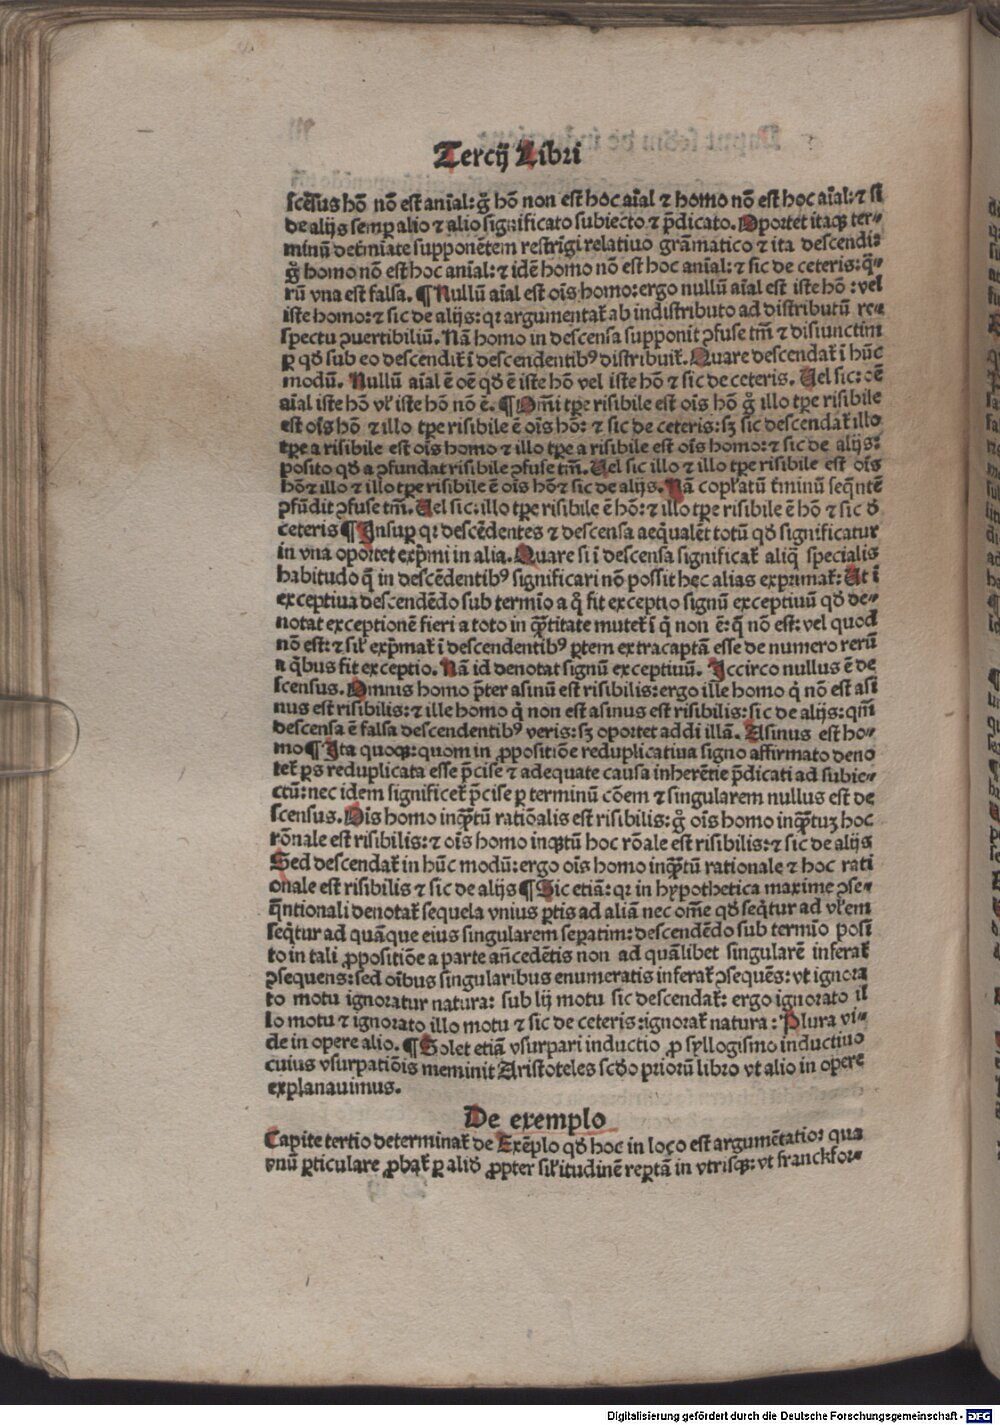 Tercij Libri
scẽsus hõ nõ est anĩal: g̊ hõ non est hoc aĩal ⁊ homo nõ est hoc aĩal: ⁊ si
de alijs semꝑ alio ⁊ alio significato subiecto ⁊ p̃dicato. Oportet itaqꝫ ter⸗
minũ det̃mĩate supponẽtem restrĩgi relatiuo grãmatico ⁊ ita descendi:
g̊ homo nõ est hoc anĩal: ⁊ idẽ homo nõ est hoc anĩal: ⁊ sic de ceteris: q̃⸗
rũ vna est falsa. ¶ Nullũ aĩal est oĩs homo: ergo nullũ aĩal est iste hõ: vel
iste homo: ⁊ sic de alijs: qꝛ argumentat̃ ab indistributo ad distributũ re⸗
spectu ꝯuertibiliũ. Nã homo in descensa supponit ꝯfuse tm̃ ⁊ disiunctim
ꝑ qđ sub eo descendit̃ ĩ descendentibꝰ distribuit̃. Quare descendat̃ ĩ hũc
modũ. Nullũ aĩal ẽ oẽ qđ ẽ iste hõ vel iste hõ ⁊ sic de ceteris. Uel sic: oẽ
aĩal iste hõ vl̃ iste hõ nõ ẽ. ¶ Om̃i tꝑe risibile est oĩs hõ g̊ illo tꝑe risibile
est oĩs hõ ⁊ illo tꝑe risibile ẽ oĩs hõ: ⁊ sic de ceteris: sꝫ sic descendat̃ illo
tꝑe a risibile est oĩs homo ⁊ illo tꝑe a risibile est oĩs homo: ⁊ sic de alijs:
posito qđ a ꝯfundat risibile ꝯfuse tm̃. Uel sic illo ⁊ illo tꝑe risibile est oĩs
hõ ⁊ illo ⁊ illo tꝑe risibile ẽ oĩs hõ ⁊ sic de alijs. Nã copl̃atũ t̃minũ seq̃ntẽ
ꝯfũdit ꝯfuse tm̃. Uel sic: illo tꝑe risibile ẽ hõ: ⁊ illo tꝑe risibile ẽ hõ ⁊ sic đ
ceteris ¶ Insuꝑ qꝛ descẽdentes ⁊ descensa aeq̃ualẽt totũ qđ significatur
in vna oportet exp̃mi in alia. Quare si ĩ descensa significat̃ aliq̃ specialis
habitudo q̃ in descẽdentibꝰ significari nõ possit hęc alias exprimat̃: Ut ĩ
exceptiua descendẽdo sub termĩo a q̊ fit exceptio signũ exceptiuũ qđ de⸗
notat exceptionẽ fieri a toto in q̃titate mutet̃ ĩ q̃ non ẽ: q̃ nõ est: vel quod
nõ est: ⁊ sil̃ exp̃mat̃ ĩ descendentibꝰ ꝑtem extracaptã esse de numero rerũ
a q̃bus fit exceptio. Nã id denotat signũ exceptiuũ. Iccirco nullus ẽ de
scensus. Omnis homo p̃ter asinũ est risibilis: ergo ille homo q̃ nõ est asi
nus est risibilis: ⁊ ille homo q̃ non est asinus est risibilis: sic de alijs: qm̃
descensa ẽ falsa descendentibꝰ veris: sꝫ oportet addi illã. Asinus est ho⸗
mo ¶ Ita quoqꝫ: quom in ꝓpositiõe reduplicatiua signo affirmato deno
tet̃ ꝑs reduplicata esse p̃cise ⁊ adequate causa inherẽtie p̃dicati ad subie⸗
ctũ: nec idem significet̃ p̃cise ꝑ terminũ cõem ⁊ singularem nullus est de
scensus. Oĩs homo inq̃tũ ratiõalis est risibilis: g̊ oĩs homo inq̃tuꝫ hoc
rõnale est risibilis: ⁊ oĩs homo inq̃tũ hoc rõale est risibilis: ⁊ sic de alijs
Sed descendat̃ in hũc modũ: ergo oĩs homo inq̃tũ rationale ⁊ hoc rati
onale est risibilis ⁊ sic de alijs ¶ Sic etiã: qꝛ in hypothetica maxime ꝯse⸗
q̃ntionali denotat̃ sequela vnius ꝑtis ad aliã nec om̃e qđ seq̃tur ad vl̃em
seq̃tur ad quãque eius singularem seꝑatim: descendẽdo sub termĩo posi
to in tali ꝓpositiõe a parte añcedẽtis non ad quãlibet singularẽ inferat̃
ꝯsequens: sed oĩbus singularibus enumeratis inferat̃ ꝯsequẽs: vt ignora
to motu ignoratur natura: sub lij motu sic descendat̃: ergo ignorato il
lo motu ⁊ ignorato illo motu ⁊ sic de ceteris: ignorat̃ natura: Plura vi⸗
de in opere alio. ¶ Solet etiã vsurpari inductio ꝓ syllogismo inductiuo
cuius vsurpatiõis meminit Aristoteles scđo priorũ libro vt alio in opere
explanauimus.
De exemplo
Capite tertio determinat̃ de Exẽplo qđ hoc in loco est argumẽtatio: qua
vnũ ꝑticulare ꝓbat̃ ꝑ aliđ ꝓpter sil̃itudinẽ reꝑtã in vtrisqꝫ: vt franckfor⸗
Digitalisierung gefördert durch die Deutsche Forschungsgemeinschaft - DFG